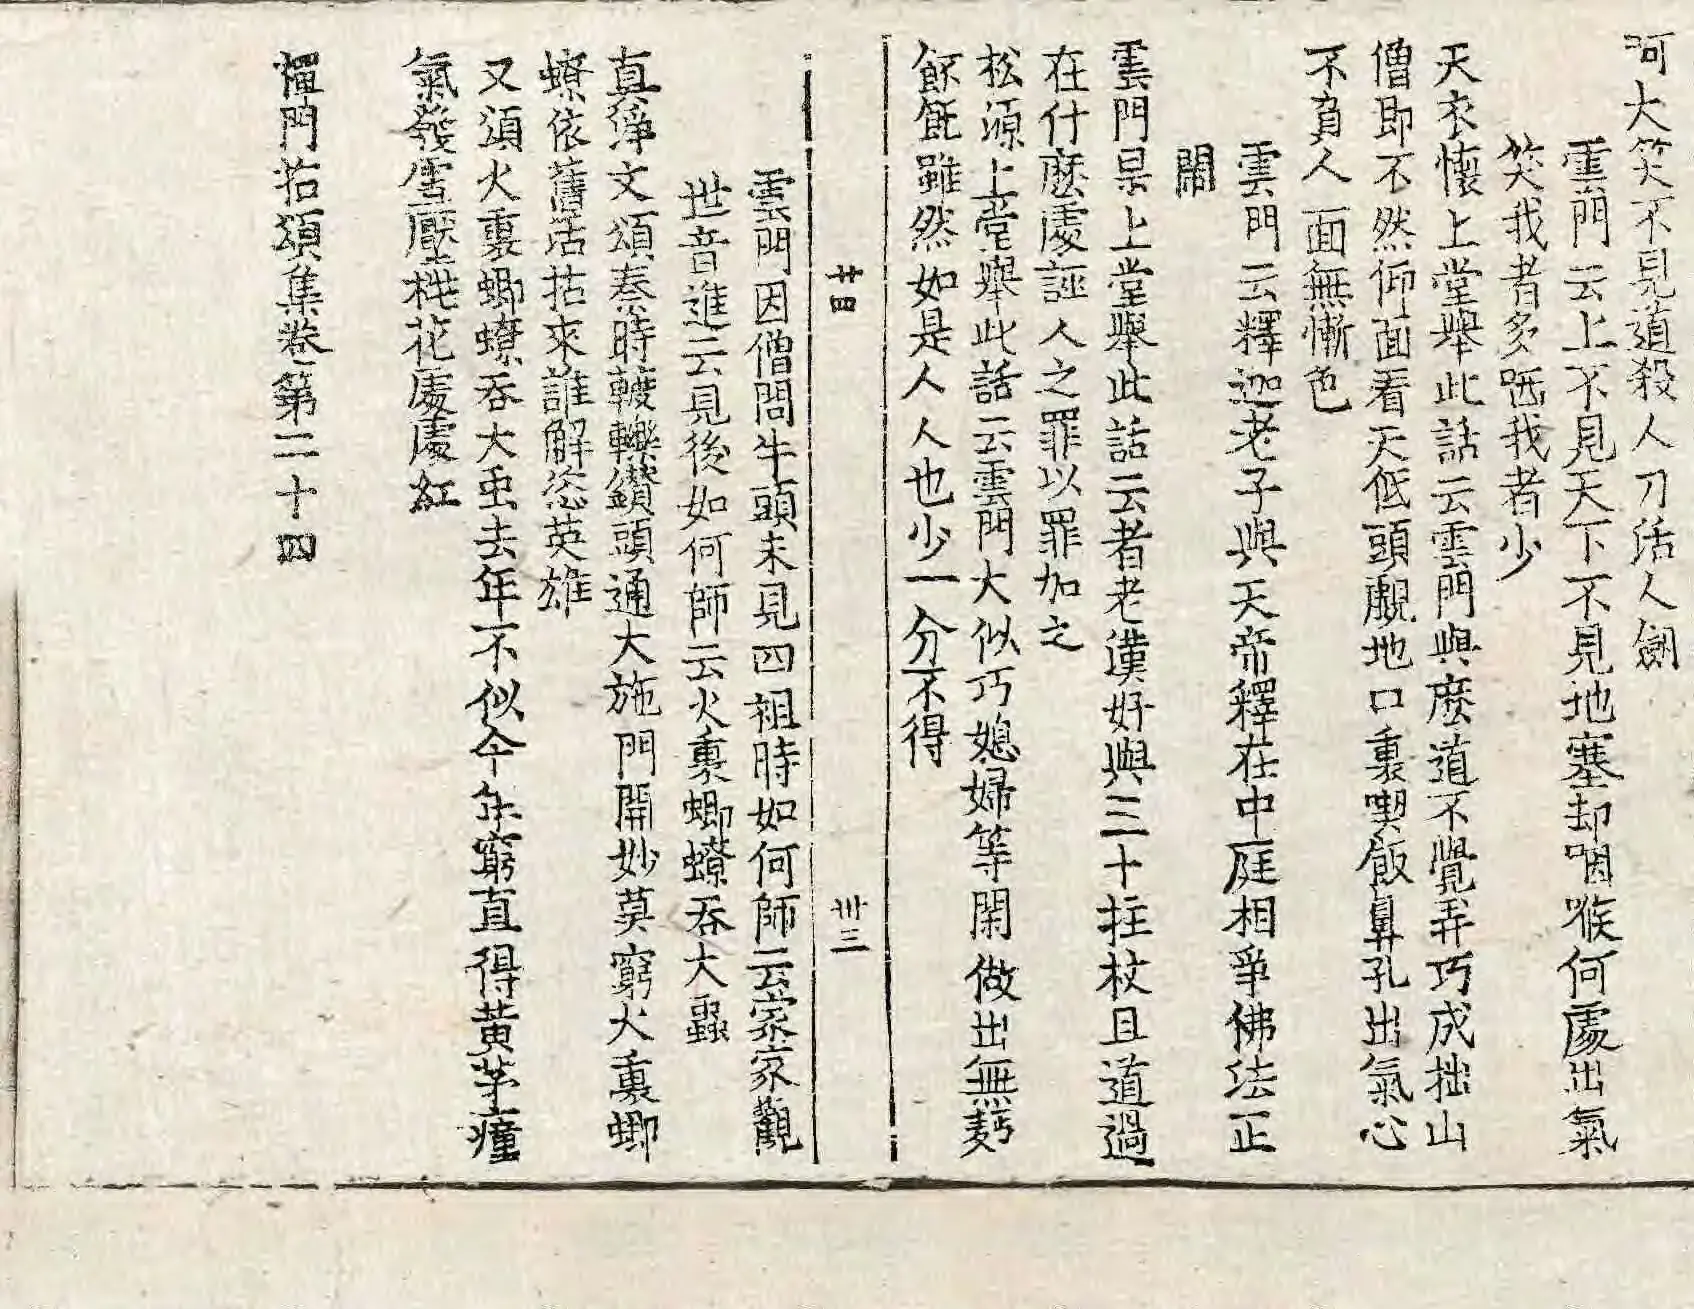 呵大笑不見道殺人刀活人劒
雲門云上不見天下不見地塞却咽喉何處出氣
笑我者多哂我者少
天衣懷上堂舉此話云雲門與麽道不覺弄巧成拙山
僧即不然仰面看天低頭覷地口裏喫飯鼻孔出氣心
不負人面無慚色
雲門云釋迦老子與天帝釋在中庭相爭佛法正
閙
雲門杲上堂舉此話云者老漢好與三十拄杖且道過
在什麽處誣人之罪以罪加之
松源上堂舉此話云雲門大似巧媳婦等閑做出無麪
飥雖然如是人人也少一分不得
廿四
卅三
雲門因僧問牛頭未見四祖時如何師云家家觀
世音進云見後如何師云火裏蝍蟟吞大蟲
真淨文頌秦時𨍏轢鑽頭通大施門開妙莫窮火裏蝍
蟟依舊活拈來誰解恣英雄
又須火裏蝍蟟吞大虫去年不似今年窮直得黃茅瘴
氣發雪壓桃花處處紅
禪門拈頌集卷第二十四